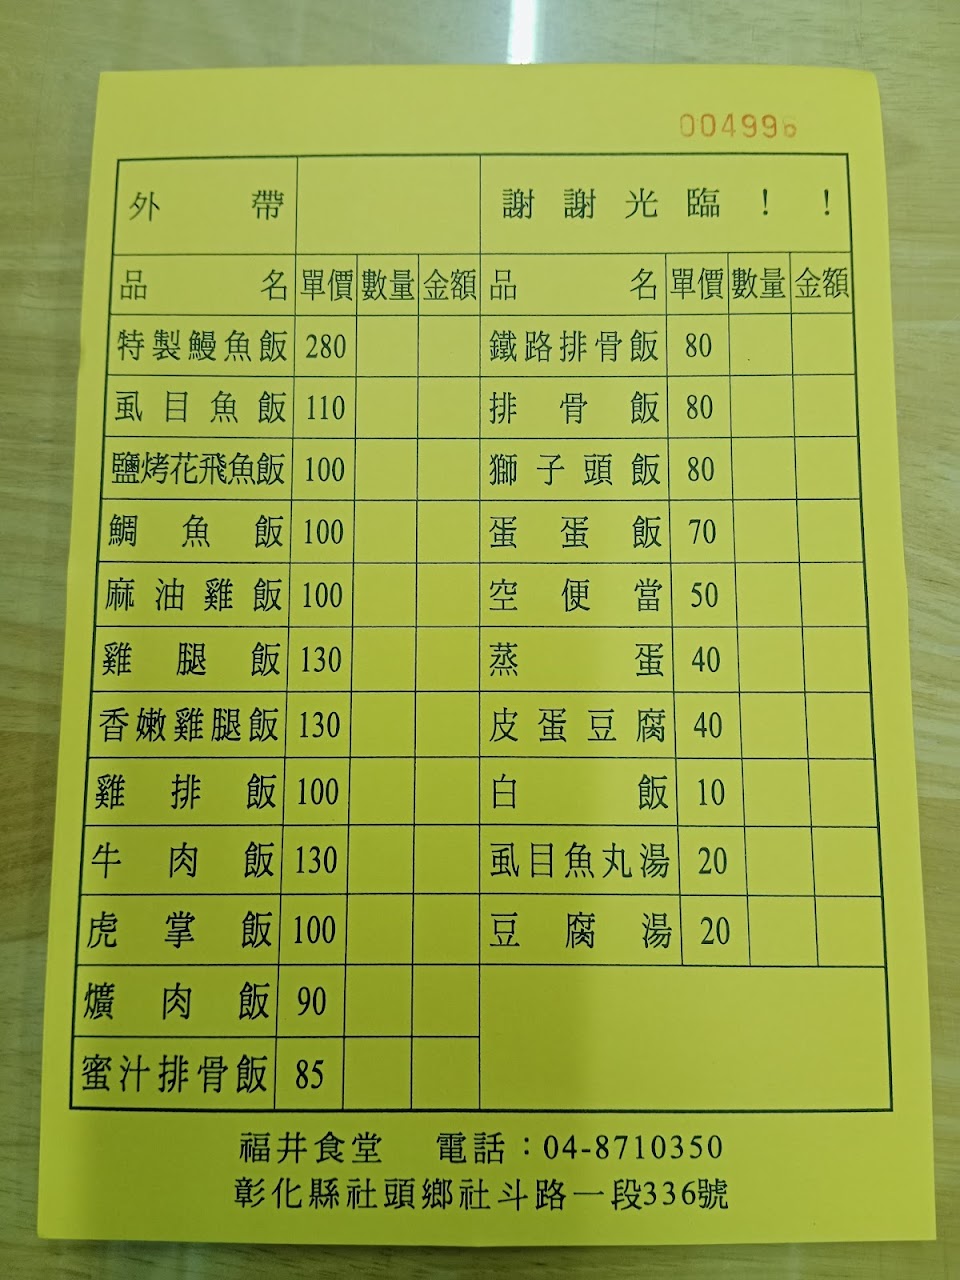 004996
外帶 謝謝光臨！！
品名 單價 數量 金額 品名 單價 數量 金額
特製鰻魚飯 280 鐵路排骨飯 80
虱目魚飯 110 排骨飯 80
鹽烤花飛魚飯 100 獅子頭飯 80
鯛魚飯 100 蛋蛋飯 70
麻油雞飯 100 空便當 50
雞腿飯 130 蒸蛋 40
香嫩雞腿飯 130 皮蛋豆腐 40
雞排飯 100 白飯 10
牛肉飯 130 虱目魚丸湯 20
虎掌飯 100 豆腐湯 20
爌肉飯 90
蜜汁排骨飯 85
福井食堂 電話：04-8710350
彰化縣社頭鄉社斗路一段336號